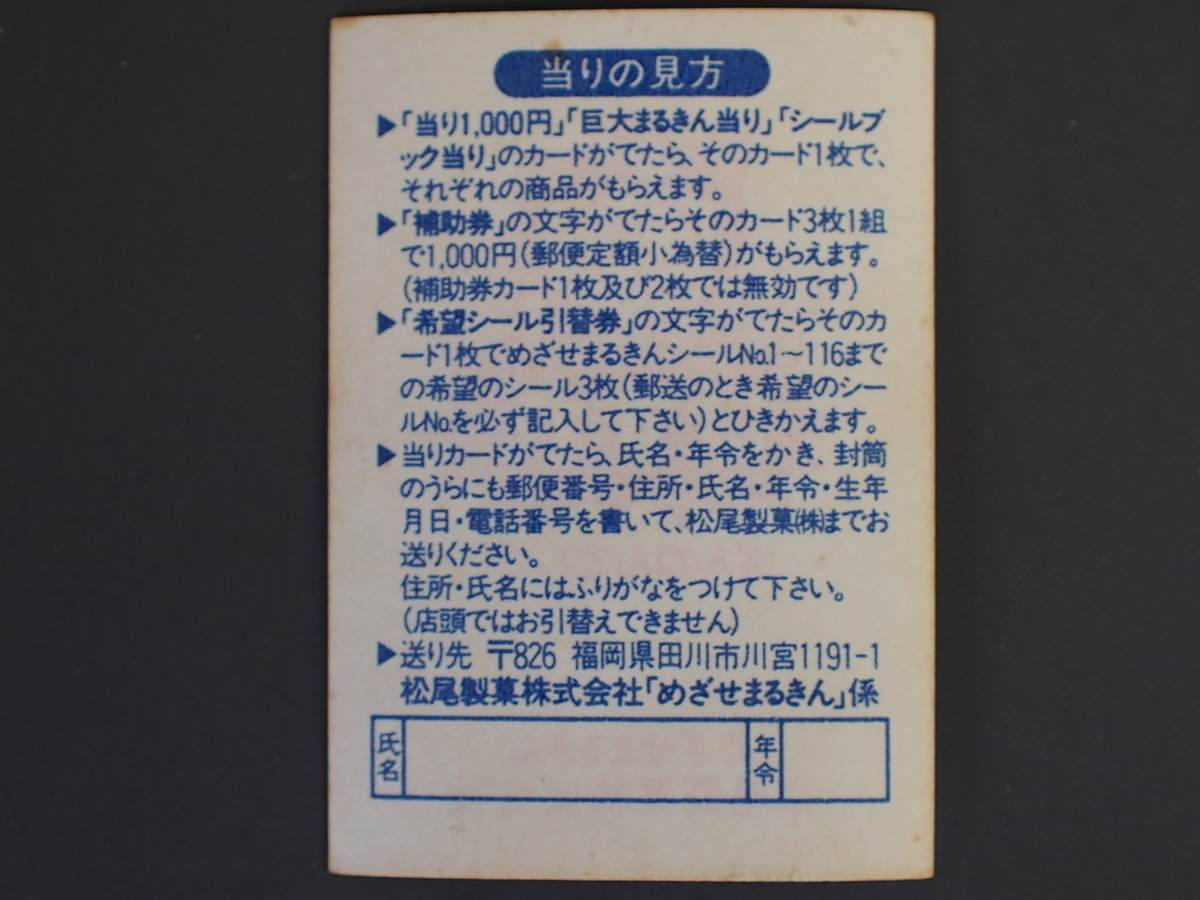 当りの見方
▶「当り1,000円」「巨大まるきん当り」「シールブ
ック当り」のカードがでたら、そのカード1枚で、
それぞれの商品がもらえます。
▶「補助券」の文字がでたらそのカード3枚1組
で1,000円(郵便定額小為替)がもらえます。
(補助券カード1枚及び2枚では無効です)
▶「希望シール引替券」の文字がでたらそのカ
ード1枚でめざせまるきんシールNo.1〜116まで
の希望のシール3枚(郵送のとき希望のシー
ルNo.を必ず記入して下さい)とひきかえます。
▶当りカードがでたら、氏名・年令をかき、封筒
のうらにも郵便番号・住所・氏名・年令・生年
月日・電話番号を書いて、松尾製菓㈱までお
送りください。
住所・氏名にはふりがなをつけて下さい。
(店頭ではお引替えできません)
▶送り先 〒826 福岡県田川市川宮1191-1
松尾製菓株式会社「めざせまるきん」係
氏名
年令